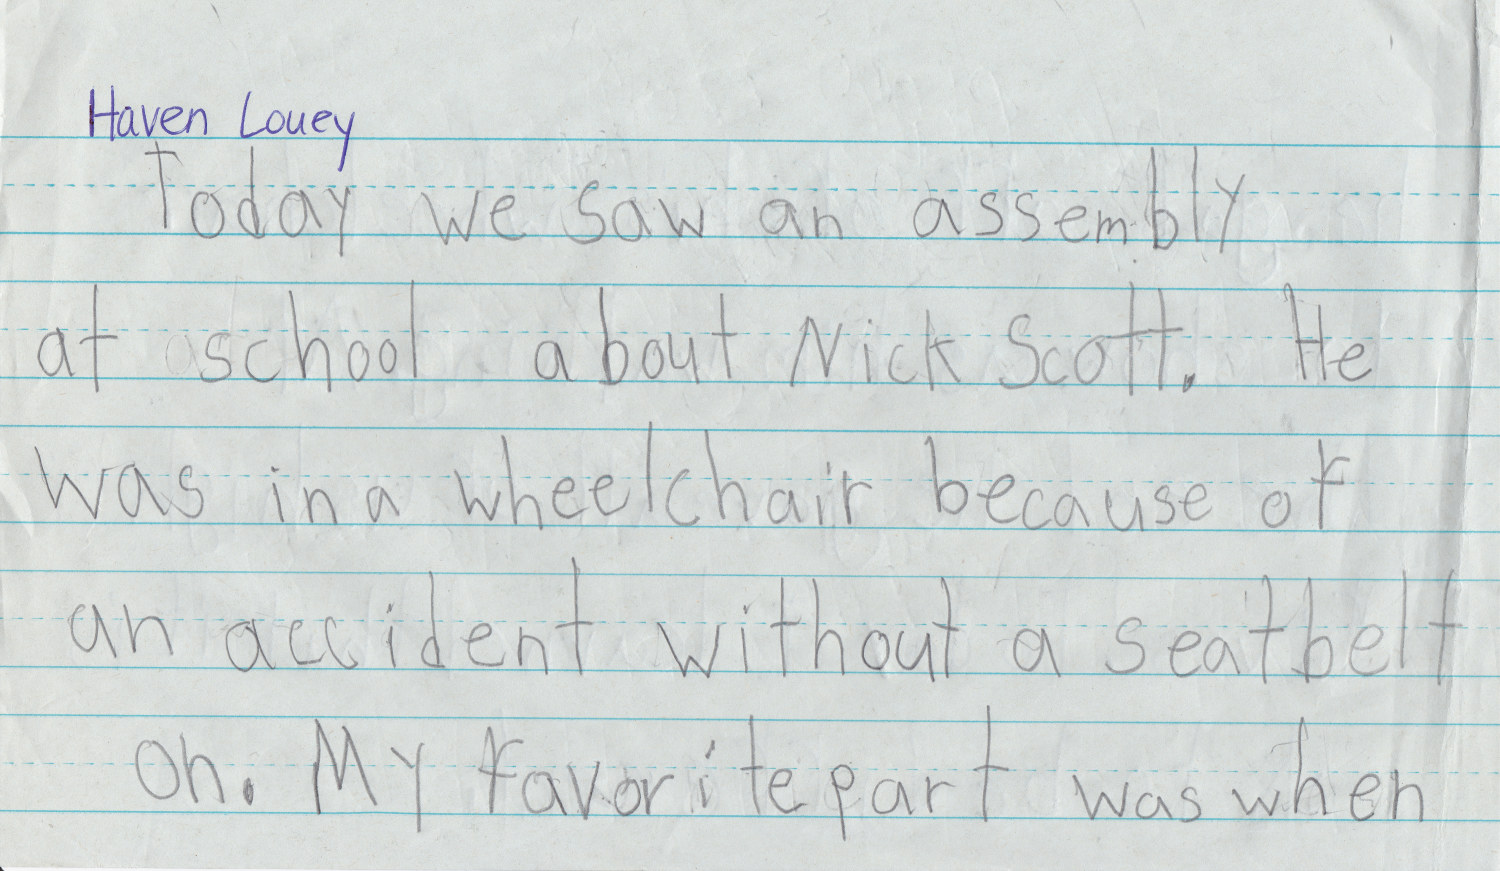 Haven Louey
Today we saw an assembly
at school about Nick Scott. He
was in a wheelchair because of
an accident without a seatbelt
on. My favorite part was when